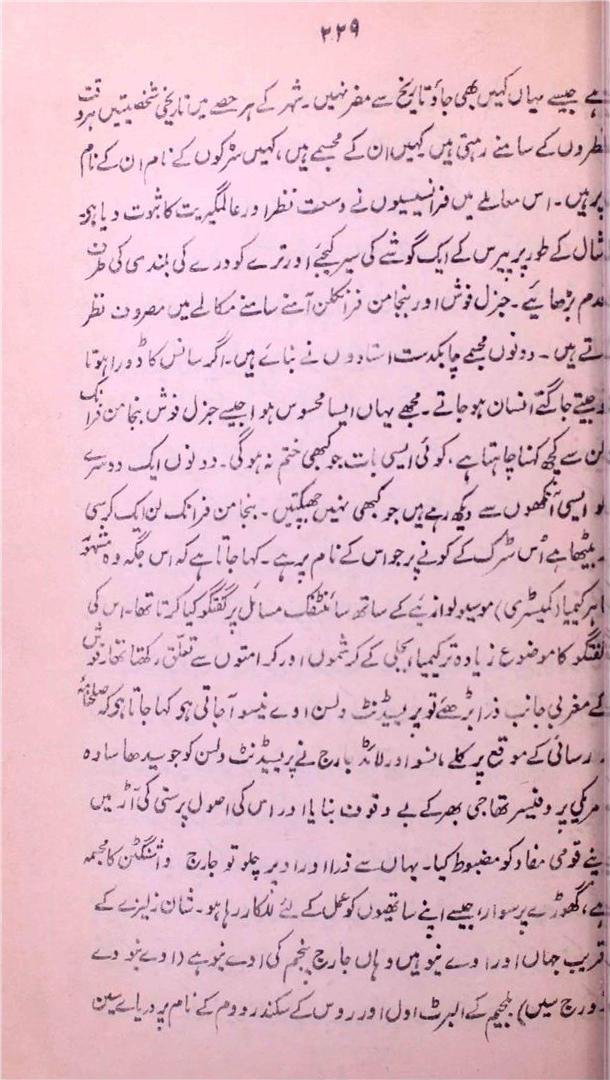 ۲۲۹
ہے جیسے یہاں کہیں بھی جاؤ تاریخ سے مفر نہیں۔ شہر کے ہر حصے میں تاریخی شخصیتیں ہر وقت
نظروں کے سامنے رہتی ہیں کہیں ان کے مجسمے ہیں، کہیں سڑکوں کے نام ان کے نام
پر ہیں۔ اس معاملے میں فرانسیسیوں نے وسعت نظر اور عالمگیریت کا ثبوت دیا ہے۔
مثال کے طور پر پیرس کے ایک گوشے کی سیر کیجئے اور ترے کو درے کی بلندی کی طرف
قدم بڑھایئے۔ جنرل فوش اور بنجامن فرانکلن آمنے سامنے مکالمے میں مصروف نظر
آتے ہیں۔ دونوں مجسمے چابکدست استادوں نے بنائے ہیں۔ اگر سانس کا ڈورا ہوتا
تو جیتے جاگتے انسان ہو جاتے۔ مجھے یہاں ایسا محسوس ہوا جیسے جنرل فوش بنجامن فرانک
لن سے کچھ کہنا چاہتا ہے، کوئی ایسی بات جو کبھی ختم نہ ہو گی۔ دونوں ایک دوسرے
کو ایسی آنکھوں سے دیکھ رہے ہیں جو کبھی نہیں جھپکتیں۔ بنجامن فرانک لن ایک کرسی
پر بیٹھا ہے اُس سڑک کے کونے پر جو اس کے نام پر ہے۔ کہا جاتا ہے کہ اس جگہ وہ مشہور
ماہر کیمیا (کمیسٹری) موسیو لوازیئے کے ساتھ سائنٹفک مسائل پر گفتگو کیا کرتا تھا۔ اس کی
گفتگو کا موضوع زیادہ تر کیمیا، بجلی کے کرشموں اور کرامتوں سے تعلق رکھتا تھا۔ فوش
کے مغربی جانب ذرا بڑھئے تو پریسیڈنٹ ولسن اوے نیو آ جاتی ہے کہا جاتا ہے کہ صلحنامہ
ورسائی کے موقع پر کلے منسو اور لائڈ جارج نے پریسیڈنٹ ولسن کو جو سیدھا سادہ
امریکی پروفیسر تھا جی بھر کے بے وقوف بنایا اور اس کی اصول پرستی کی آڑ میں
اپنے قومی مفاد کو مضبوط کیا۔ یہاں سے ذرا اور اوپر چلو تو جارج واشنگٹن کا مجسمہ
ہے، گھوڑے پر سوار، جیسے اپنے ساتھیوں کو عمل کے لئے للکار رہا ہو۔ شان زیلیزے کے
قریب جہاں اور اوے نیو ہیں وہاں جارج پنجم کی اوے نیو ہے (اوے نیو دے
ژورج سیں) بلجیم کے البرٹ اول اور روس کے سکندر دوم کے نام پر دریائے سین